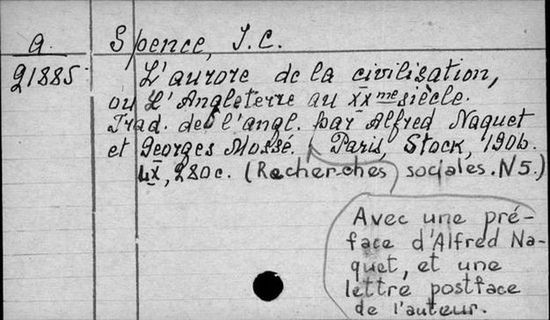 a. Spence, J.C.
21885 L'aurore de la civilisation,
ou L'Angleterre au XXme siècle.
Trad. de l'angl. par Alfred Naquet
et Georges Mossé. Paris, Stock, 1906.
IX, 280c. (Recherches sociales. N5.)
Avec une pré-
face d'Alfred Na-
quet, et une
lettre postface
de l'auteur.